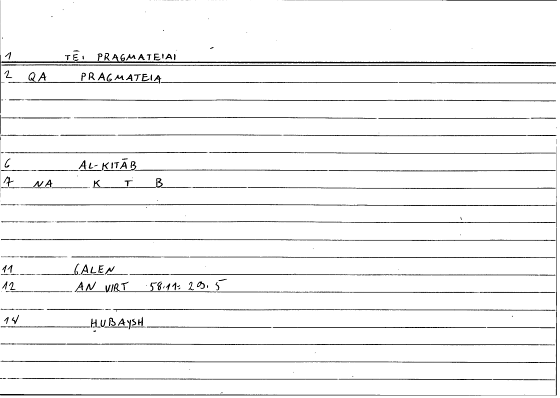 1 TĒI PRAGMATEIAI
2 QA PRAGMATEIA
6 AL-KITĀB
7 NA K T B
11 GALEN
12 AN VIRT 58.11: 29.5
14 ḤUBAYSH